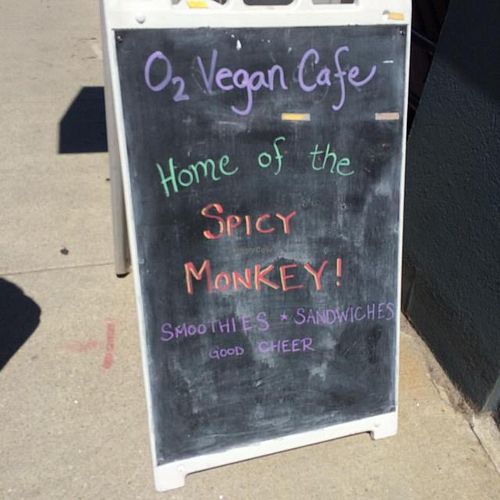 O₂ Vegan Cafe
Home of the
SPICY
MONKEY!
SMOOTHIES * SANDWICHES
GOOD CHEER